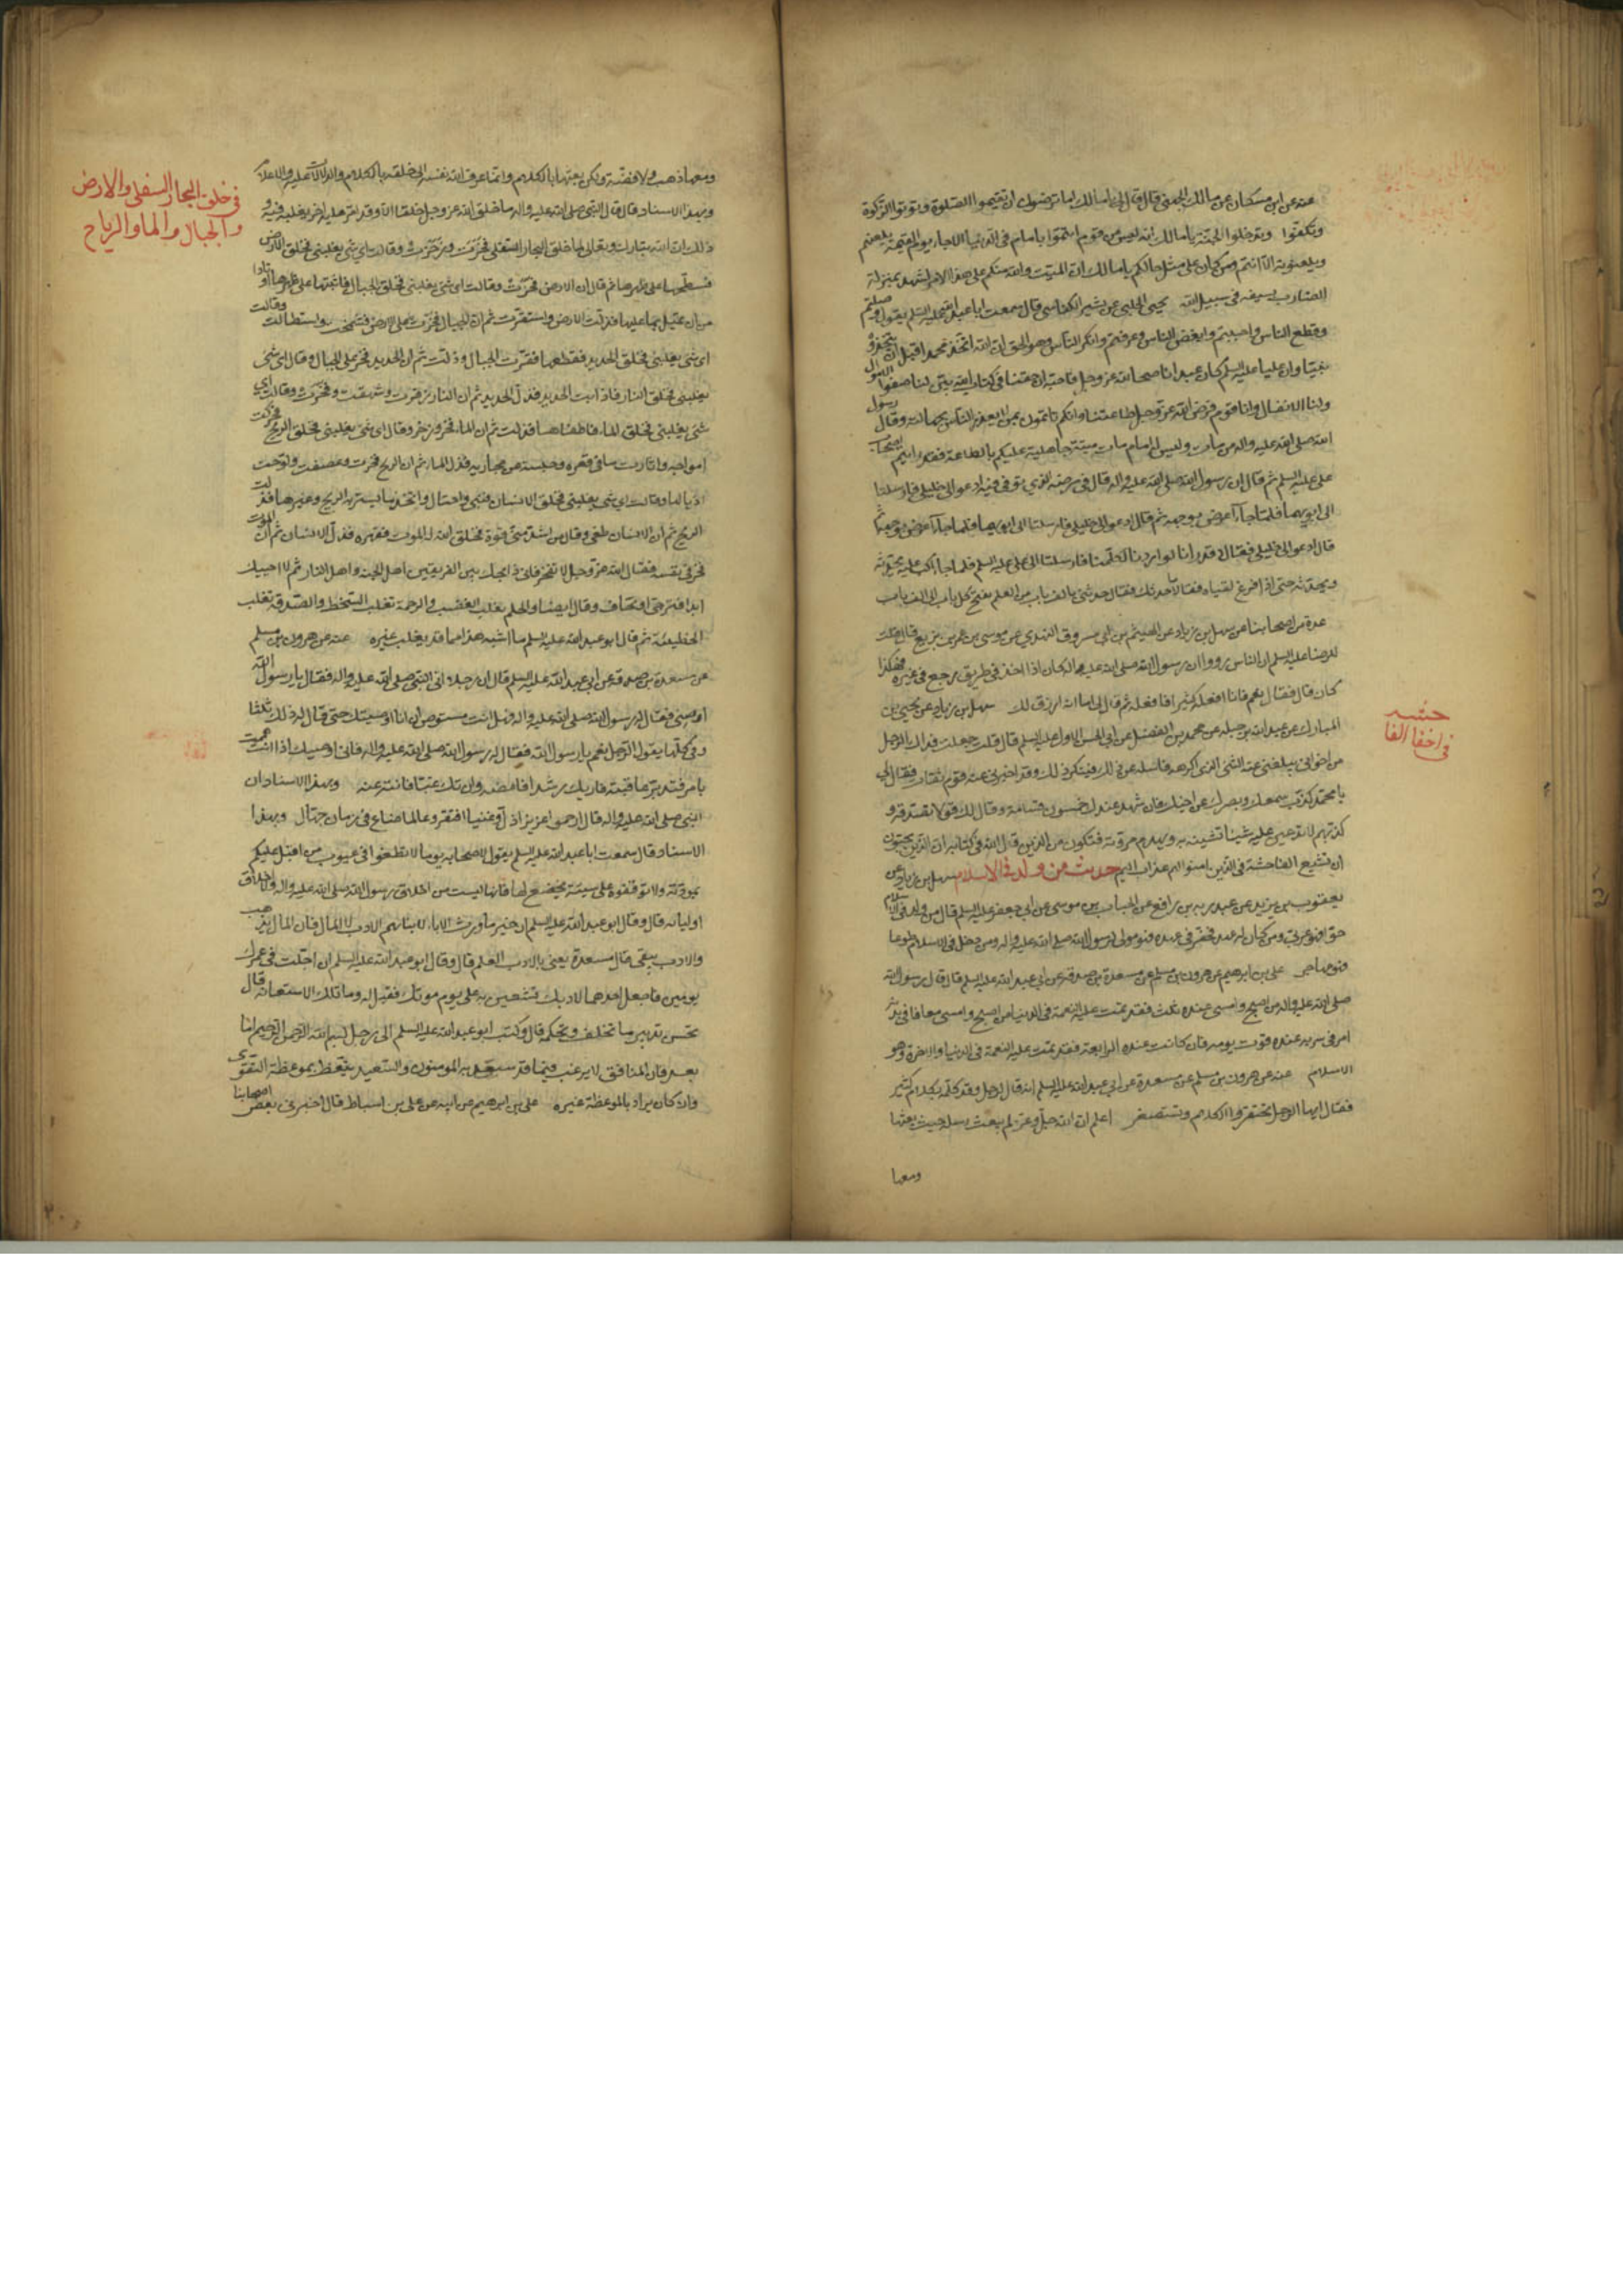 عنه عن ابن مسكان عن مالك الجهني قال قال لي يا مالك اما ترضون ان تقيموا الصلوة وتؤتوا الزكوة
وتكفوا وتدخلوا الجنة يا مالك انه ليس من قوم ائتموا بامام في الدنيا الا جاء يوم القيمة يلعنهم
ويلعنونه الا انتم ومن كان على مثل حالكم يا مالك ان الميت والله منكم على هذا الامر لشهيد بمنزلة
الضارب بسيفه في سبيل الله يحيى الحلبي عن بشير الكناسي قال سمعت ابا عبد الله عليه السلم يقول وصلتم
وقطع الناس واحببتم وابغض الناس وعرفتم وانكر الناس وهو الحق ان الله اتخذ محمدا قبل ان يتخذه
نبيا وان عليا عليه السلم كان عبدا ناصحا لله عز وجل فاحبه ان حقنا في كتاب الله بين لنا صفوا الاموال
ولنا الانفال وانا قوم فرض الله عز وجل طاعتنا وانكم تاتمون بمن لا يعذر الناس بجهالته وقال رسول
الله صلى الله عليه واله من مات وليس له امام مات ميتة جاهلية عليكم بالطاعة فقد رايتم اصحاب
على عليه السلم ثم قال ان رسول الله صلى الله عليه واله قال في مرضه الذي توفي فيه ادعوا لي خليلي فارسلتا
الى ابويهما فلما جاءا اعرض بوجهه ثم قال ادعوا لي خليلي فارسلتا الى ابويهما فلما جاءا اعرض بوجهه ثم
قال ادعوا لي خليلي فقالا قد رانا لو ارادنا لكلمنا فارسلتا الى على عليه السلم فلما جاء اكب عليه يحدثه
ويحدثه حتى اذا فرغ لقياه فقالا ما حدثك فقال حدثني بالف باب من العلم يفتح كل باب الى الف باب
عدة من اصحابنا عن سهل بن زياد عن الهيثم بن ابي مسروق النهدي عن موسى بن عمر بن بزيع قال قلت
للرضا عليه السلم ان الناس رووا ان رسول الله صلى الله عليه واله كان اذا اخذ في طريق رجع في غيره فهكذا
كان قال فقال نعم فانا افعله كثيرا فافعله ثم قال لي اما انه ارزق لك سهل بن زياد عن يحيى بن
المبارك عن عبد الله بن جبلة عن محمد بن الفضل عن ابي الحسن الاول عليه السلم قال قلت جعلت فداك الرجل
من اخواني يبلغني عنه الشئ الذي اكرهه فاسله عن ذلك فينكر ذلك وقد اخبرني عنه قوم ثقات فقال لي
يا محمد كذب سمعك وبصرك عن اخيك فان شهد عندك خمسون قسامة وقال لك قولا فصدقه و
كذبهم لا تذيعن عليه شيئا تشينه به وتهدم مروته فتكون من الذين قال الله في كتابه ان الذين يحبون
ان تشيع الفاحشة في الذين امنوا لهم عذاب اليم حديث من ولد في الاسلام سهل بن زياد عن
يعقوب بن يزيد عن عبد ربه بن رافع عن الحباب بن موسى عن ابي جعفر عليه السلم قال من ولد في الاسلام
حرا فهو عربي ومن كان له عهد فخفر في عهده فهو مولى لرسول الله صلى الله عليه واله ومن دخل في الاسلام طوعا
فهو مهاجر على بن ابرهيم عن هرون بن مسلم عن مسعدة بن صدقة عن ابي عبد الله عليه السلم قال قال رسول الله
صلى الله عليه واله من اصبح وامسى وعنده ثلث فقد تمت عليه النعمة في الدنيا من اصبح وامسى معافا في بدنه
امنا في سربه عنده قوت يومه فان كانت عنده الرابعة فقد تمت عليه النعمة في الدنيا والاخرة وهو
الاسلام عنه عن هرون بن مسلم عن مسعدة عن ابي عبد الله عليه السلم انه قال لرجل وقد كلمه بكلام كثير
فقال ايها الرجل تحتقر الكلام وتستصغر اعلم ان الله جل وعز لم يبعث رسله حيث بعثها
ومعها
حديث
في اخفا
ومعها ذهب ولا فضة ولكن بعثها بالكلام وانما عرف الله نفسه الى خلقه بالكلام والدلالات عليه والاعلام
وبهذا الاسناد قال قال النبي صلى الله عليه واله ما خلق الله عز وجل خلقا الا وقد امر عليه اخر يغلبه فيه و
ذلك ان الله تبارك وتعالى لما خلق البحار السفلى فخرت وزخرت وقالت اي شئ يغلبني فخلق الارض
فسطحها على ظهرها ثم قال ان الارض فخرت وقالت اي شئ يغلبني فخلق الجبال فاثبتها على ظهرها اوتادا
من ان تميل بما عليها فذلت الارض واستقرت ثم ان الجبال فخرت على الارض فشمخت واستطالت وقالت
اي شئ يغلبني فخلق الحديد فقطعها فقرت الجبال وذلت ثم ان الحديد فخر على الجبال وقال اي شئ
يغلبني فخلق النار فاذابت الحديد فذل الحديد ثم ان النار زفرت وشهقت وفخرت وقالت اي
شئ يغلبني فخلق الماء فاطفاها فذلت ثم ان الماء فخر وزخر وقال اي شئ يغلبني فخلق الريح فحركت
امواجه واثارت ما في قعره وحبسته عن مجاريه فذل الماء ثم ان الريح فخرت وعصفت ولوحت
اذيالها وقالت اي شئ يغلبني فخلق الانسان فبنى واحتال واتخذ ما يستتر به الريح وغيرها فذلت
الريح ثم ان الانسان طغى وقال من اشد مني قوة فخلق الله له الموت فقهره فذل الانسان ثم ان الموت
فخر في نفسه فقال الله عز وجل لا تفخر فاني ذابحك بين الفريقين اهل الجنة واهل النار ثم لا احييك
ابدا فترجى او تخاف وقال ايضا والحلم يغلب الغضب والرحمة تغلب السخط والصدقة تغلب
الخطيئة ثم قال ابو عبد الله عليه السلم ما اشبه هذا مما قد يغلب غيره عنه عن هرون بن مسلم
عن مسعدة بن صدقة عن ابي عبد الله عليه السلم قال ان رجلا اتى النبي صلى الله عليه واله فقال يا رسول الله
اوصني فقال له رسول الله صلى الله عليه واله فهل انت مستوص ان انا اوصيتك حتى قال له ذلك ثلثا
وفي كلها يقول الرجل نعم يا رسول الله فقال له رسول الله صلى الله عليه واله فاني اوصيك اذا انت هممت
بامر فتدبر عاقبته فان يك رشدا فامضه وان تك غيا فانته عنه وبهذا الاسناد ان
النبي صلى الله عليه واله قال ارحموا عزيزا ذل وغنيا افتقر وعالما ضاع في زمان جهال وبهذا
الاسناد قال سمعت ابا عبد الله عليه السلم يقول لاصحابه يوما لا تطعنوا في عيوب من اقبل عليكم
بمودته ولا توقفوه على سيئة يخضع لها فانها ليست من اخلاق رسول الله صلى الله عليه واله ولا اخلاق
اوليائه قال وقال ابو عبد الله عليه السلم ان خير ما ورث الاباء لابنائهم الادب لا المال فان المال يذهب
والادب يبقى قال مسعدة يعني بالادب العلم قال وقال ابو عبد الله عليه السلم ان اجلت في عمرك
يومين فاجعل احدهما لادبك لتستعين به على يوم موتك فقيل له وما تلك الاستعانة قال
تحسن تدبير ما تخلف وتحكمه قال وكتب ابو عبد الله عليه السلم الى رجل بسم الله الرحمن الرحيم اما
بعد فان المنافق لا يرغب فيما قد سعد به المومنون والسعيد يتعظ بموعظة التقوى
وان كان يراد بالموعظة غيره على بن ابرهيم عن ابيه عن على بن اسباط قال اخبرني بعض اصحابنا
في خلق البحار السفلى والارض
والجبال والماء والرياح